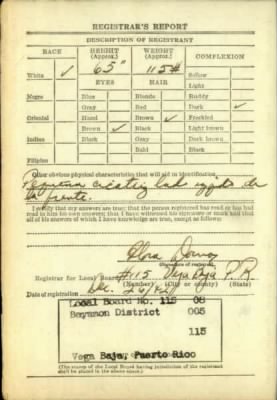 REGISTRAR'S REPORT
DESCRIPTION OF REGISTRANT
RACE HEIGHT (Approx.) WEIGHT (Approx.) COMPLEXION
White ✓ 65" 115# Sallow
EYES HAIR Light
Negro Blue Blonde Ruddy
Gray Red Dark ✓
Oriental Hazel Brown ✓ Freckled
Brown ✓ Black Light brown
Indian Black Gray Dark brown
Bald Black
Filipino
Other obvious physical characteristics that will aid in identification
lado de
la frente.
I certify that my answers are true; that the person registered has read or has had
read to him his own answers; that I have witnessed his signature or mark and that
all of his answers of which I have knowledge are true, except as follows:
(Signature of registrar)
Registrar for Local Board #115 Vega Baja P. R.
(Number) (City or county) (State)
Date of registration Dec.
Local Board No. 115 08
Bayamon District 005
115
Vega Baja, Puerto Rico
(The stamp of the Local Board having jurisdiction of the registrant
shall be placed in the above space.)